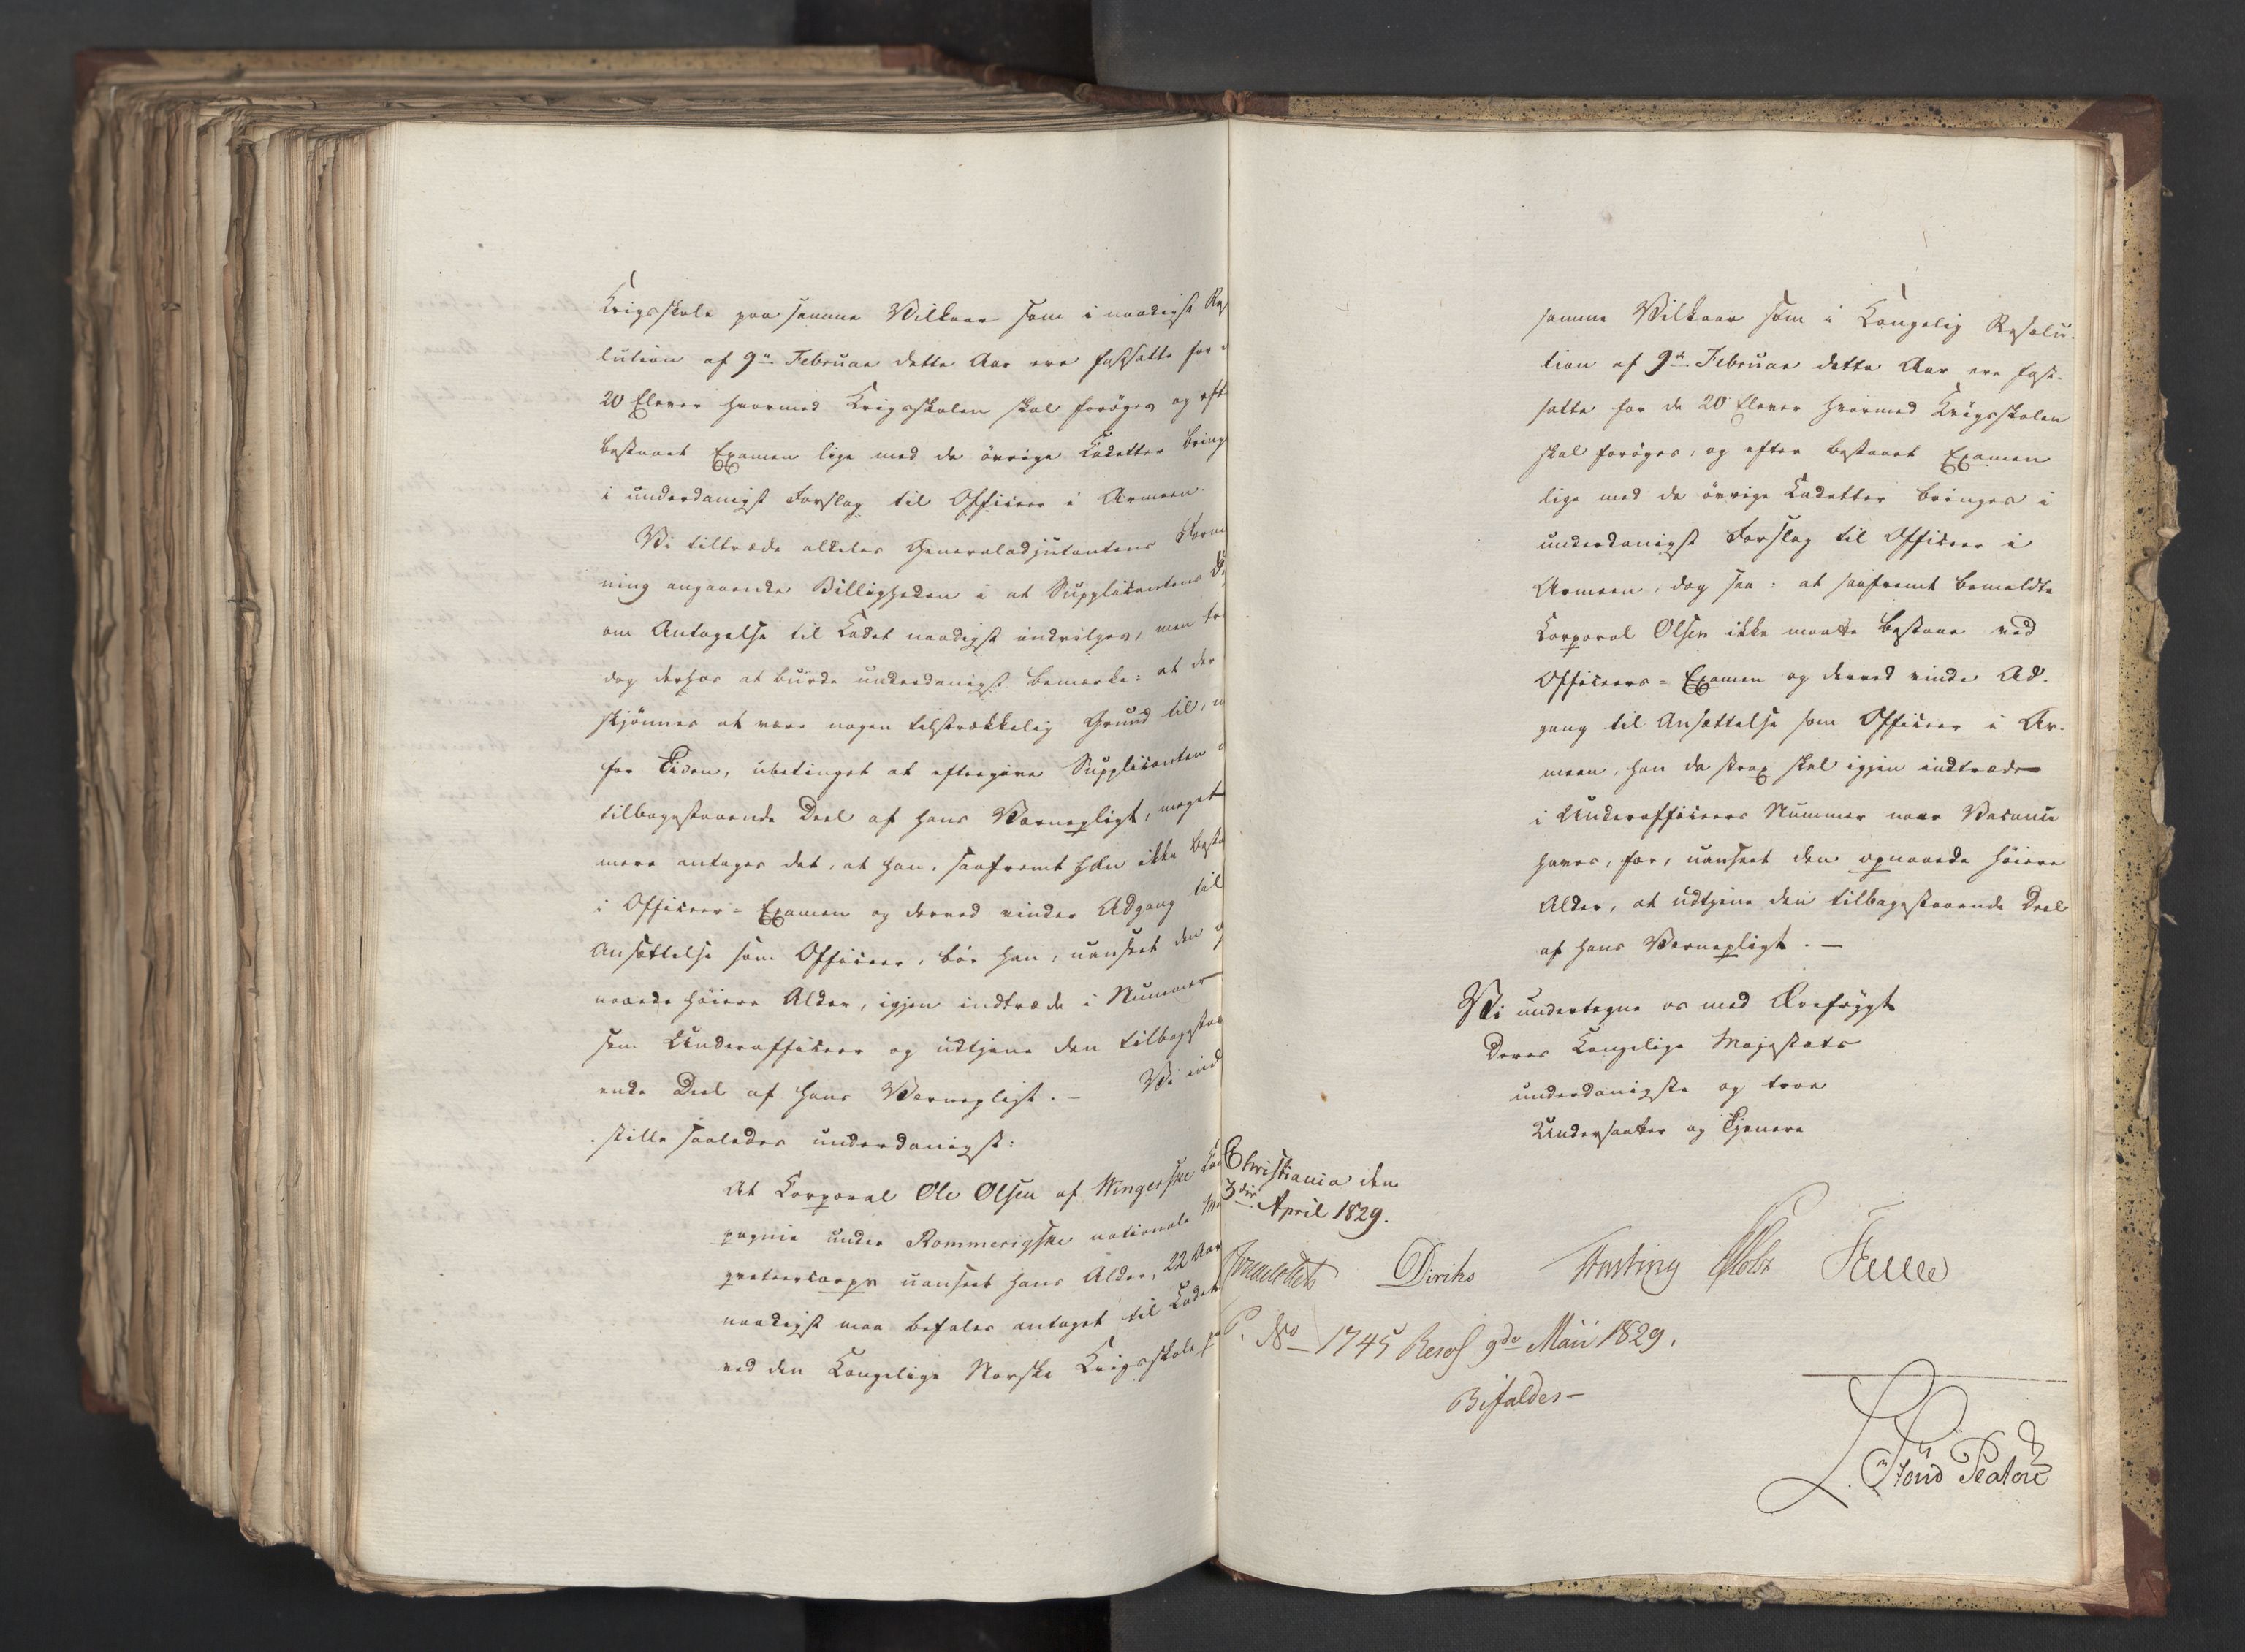 Krigsskole paa samme Vilkaar som i naadigst Re
lution af 9de Februar dette Aar ere fastsatte for
20 Elever hvormed Krigsskolen skal forøges og eft
bestaaet Examen lige med de øvrige Kadetter bring
i underdanigst Forslag til Officeer i Armeen.
Vi tiltræde aldeles Generaladjutantens
ning angaaende Billigheden i at Supplicantens
om Antagelse til Kadet naadigst indvilges, men tro
dog derhos at burde underdanigst bemærke: at der
skjønnes at være nogen tilstrækkelig Grund til,
for Tiden, ubetinget at eftergive Supplicanten
tilbagestaaende Deel af hans Værnepligt, meget
mere antages det, at han, saafremt han ikke besta
i Officeer-Examen og derved vinder Adgang til
Ansættelse som Officeer, bør han, uanseet den o
naaede høiere Alder, igjen indtræde i Nummer
som Underofficeer og udtjene den tilbagestaa
ende Deel af hans Værnepligt. – Vi ind
stille saaledes underdanigst:
At Corporal Ole Olsen af Wingerske
pagnie under Rommerigske nationale Mu
queteercorps uanseet hans Alder, 22 Aar
naadigst maa befales antaget til Kadet
ved den Kongelige Norske Krigsskole
samme Vilkaar som i Kongelig Resolu-
tion af 9de Februar dette Aar ere fast-
satte for de 20 Elever hvormed Krigsskolen
skal forøges, og efter bestaaet Examen
lige med de øvrige Kadetter bringes i
underdanigst Forslag til Officeer i
Armeen, dog saa: at saafremt bemeldte
Corporal Olsen ikke maatte bestaae ved
Officeers-Examen og derved vinde Ad-
gang til Ansættelse som Officeer i Ar-
meen, han da strax skal igjen indtræde
i Underofficeers Nummer naar Vacance
haves, for, uanseet den opnaaede høiere
Alder, at udtjene den tilbagestaaende Deel
af hans Værnepligt. –
Vi undertegne os med Ærefrygt
Deres Kongelige Majestæts
underdanigste og troe
Undersaatter og Tjenere
Christiania den
3die April 1829.
Diriks Fasting
P. No 1745 Resol 9de Mai 1829.
Bifaldes –